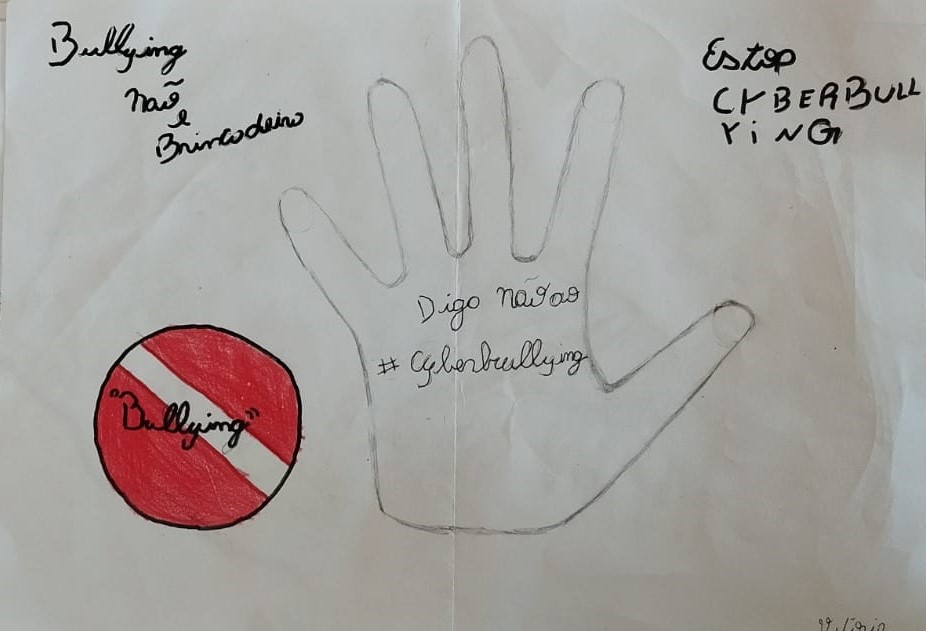 Bullying
não
e
Brincadeira
Estop
CYBERBULL
YiNG
Digo não ao
# Cyberbullying
"Bullying"